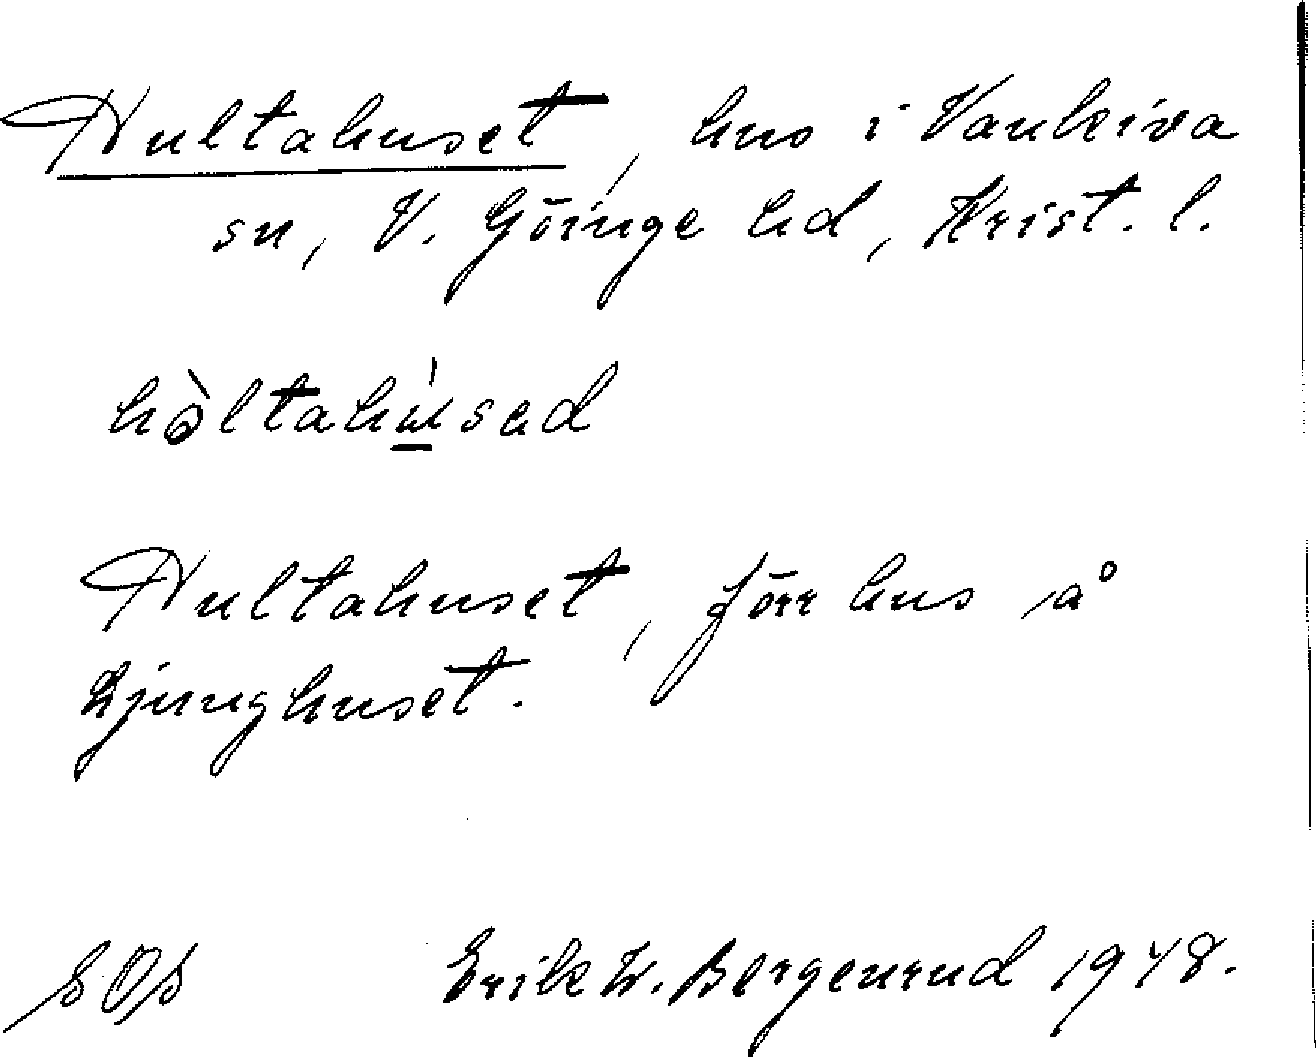 Hultahuset, hus i Vankiva
sn, V. Göinge hd, Krist. l.
hòltahúsed
Hultahuset, förr hus å
Ljunghuset.
SOS Erik W. Bergenrud 1948.